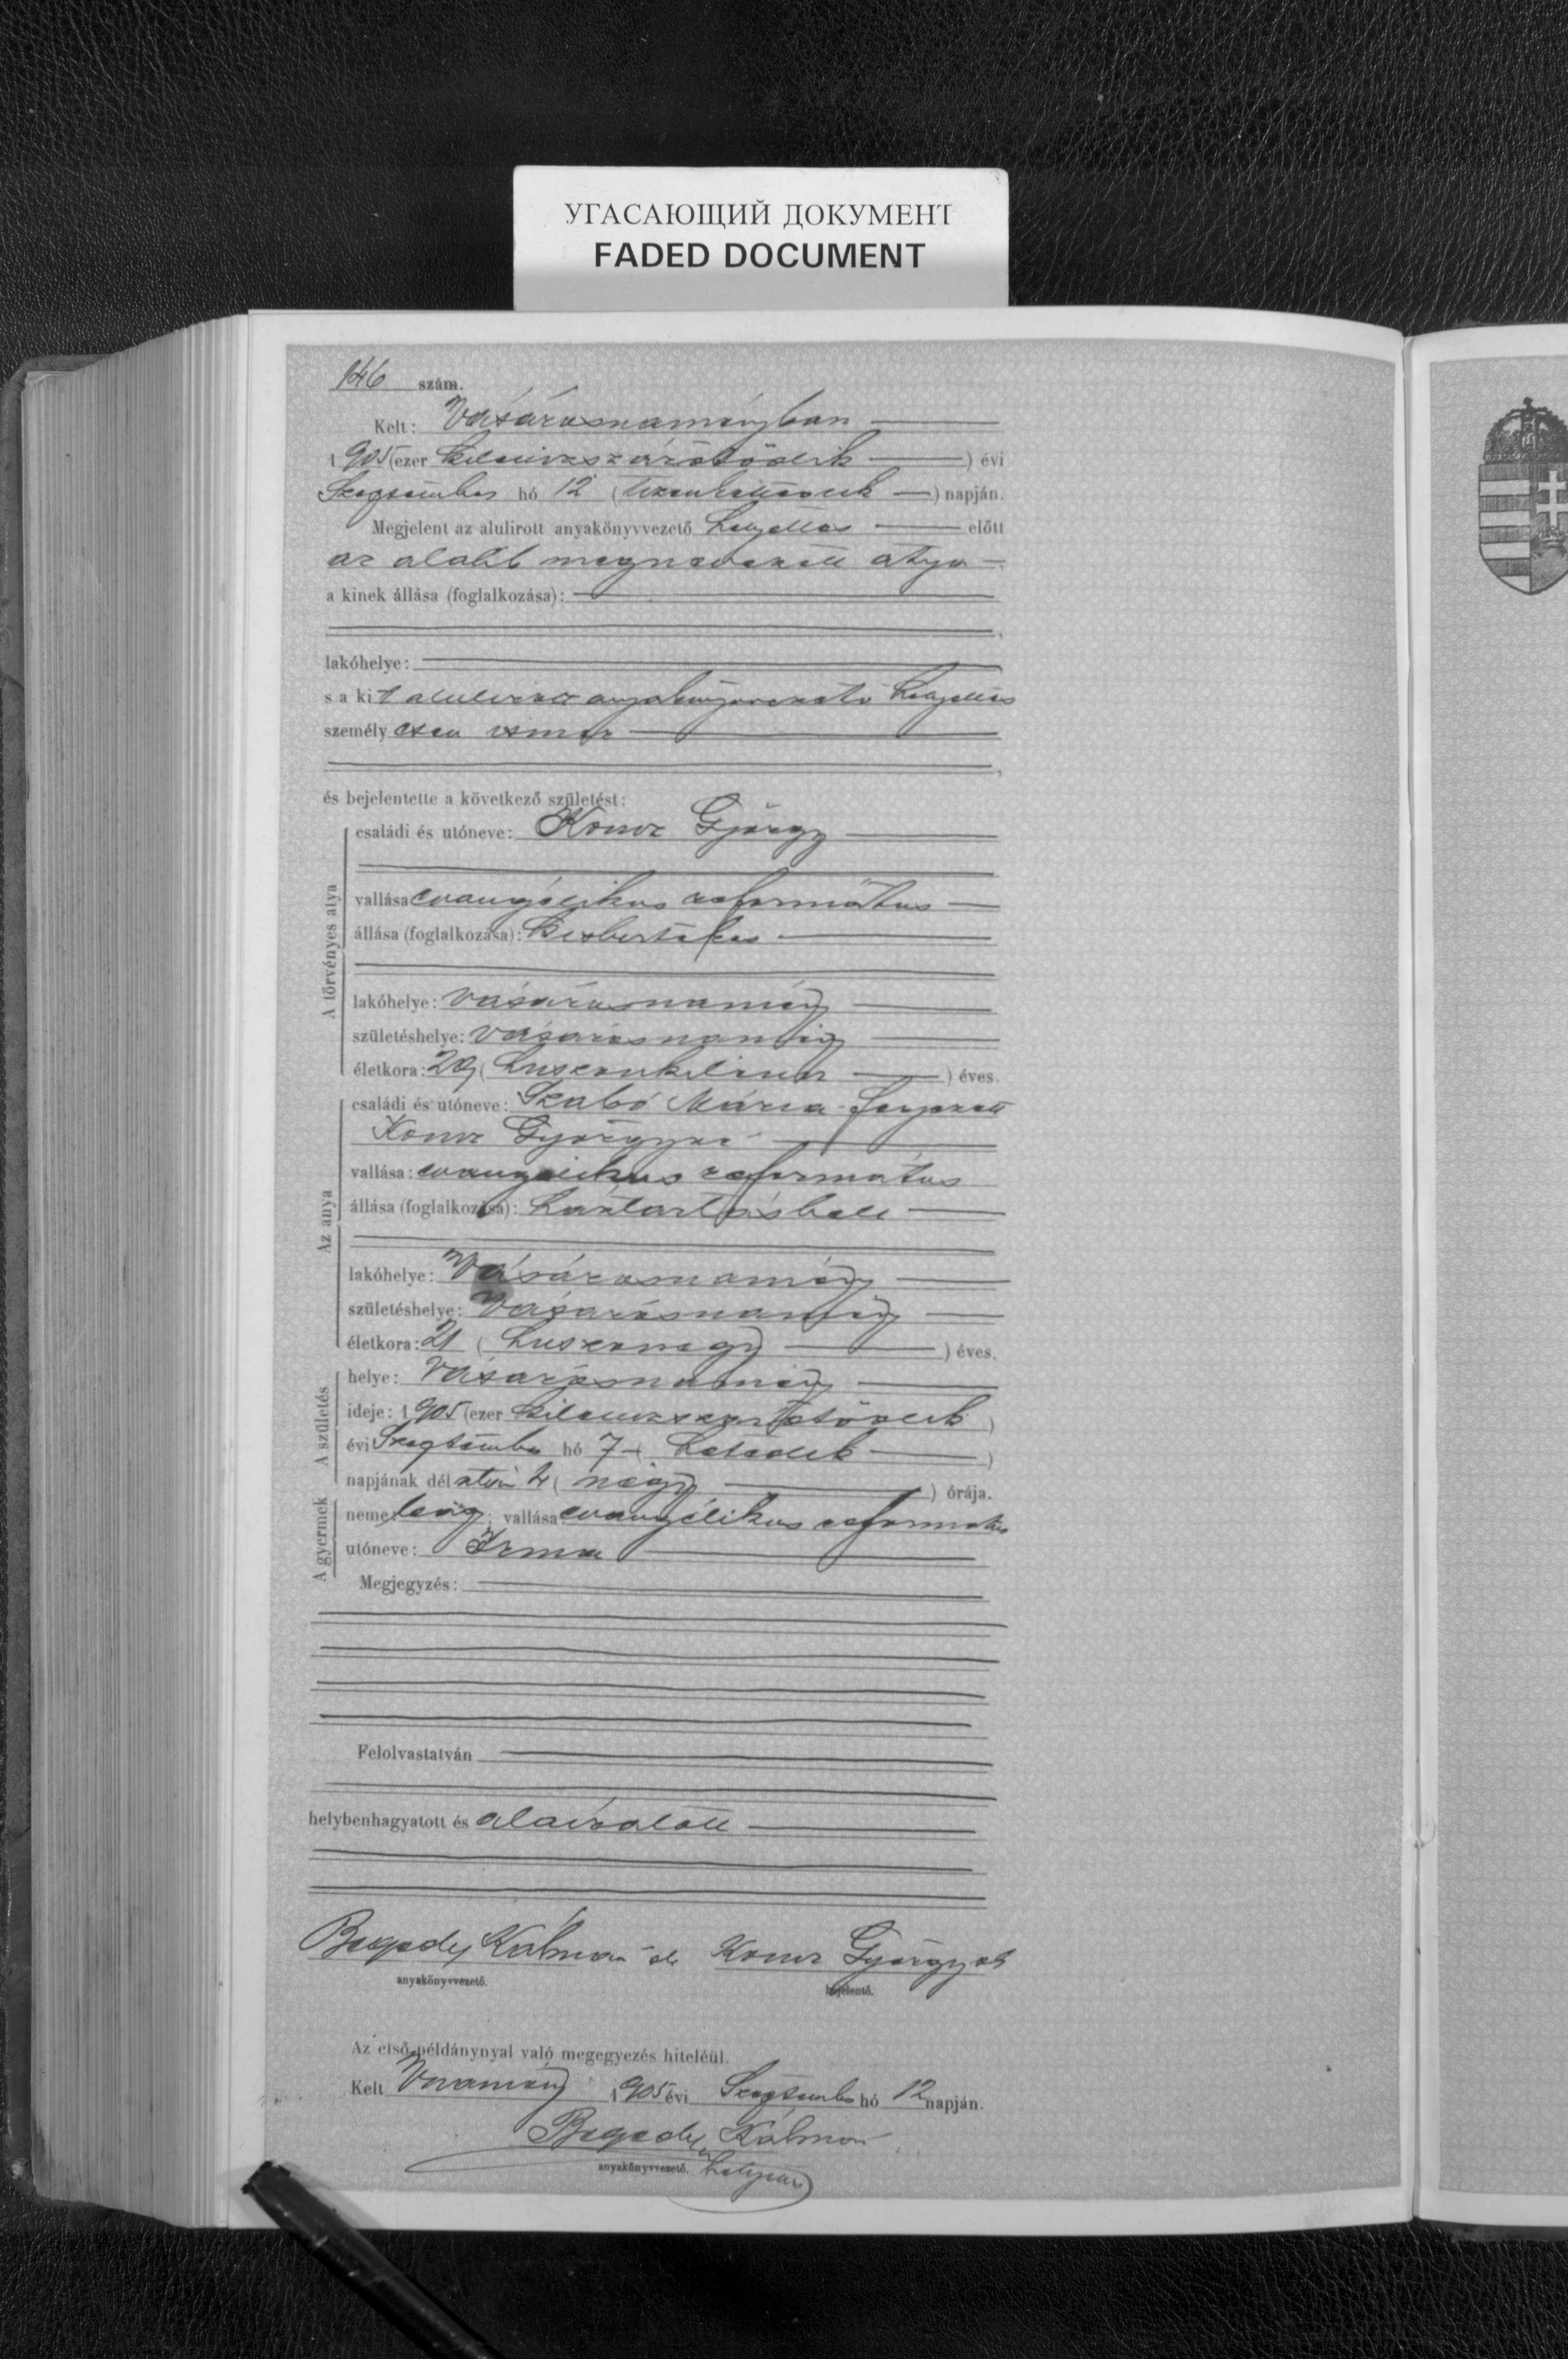 УГАСАЮЩИЙ ДОКУМЕНТ
FADED DOCUMENT
146 szám.
Kelt: Vásárosnaményban
1905 (ezer kilenczszázötödik ) évi
Szeptember hó 12 (tizenkettedik ) napján.
Megjelent az alulirott anyakönyvvezető helyettes előtt
az alább megnevezett atya
a kinek állása (foglalkozása):
lakóhelye:
s a kit alulirott anyakönyvvezető helyettes
személyesen ismer
és bejelentette a következő születést:
A törvényes atya
családi és utóneve: Koncz György
vallása evangélikus református
állása (foglalkozása): kisbirtokos
lakóhelye: Vásárosnamény
születéshelye: Vásárosnamény
életkora: 29 (huszonkilencz ) éves.
Az anya
családi és utóneve: Szabó Mária férjezett
Koncz Györgyné
vallása: evangélikus református
állása (foglalkozása): háztartásbeli
lakóhelye: Vásárosnamény
születéshelye: Vásárosnamény
életkora: 21 (huszonegy ) éves.
A születés
helye: Vásárosnamény
ideje: 1905 (ezer kilenczszázötödik )
évi Szeptember hó 7 (hetedik )
napjának délutáni 4 (négy ) órája.
A gyermek
neme: leány; vallása: evangélikus református
utóneve: Irma
Megjegyzés:
Felolvastatván
helybenhagyatott és aláiratott
Kálmán Koncz György
anyakönyvvezető. bejelentő.
Az első példánynyal való megegyezés hiteléül.
Kelt Vnamény 1905 évi Szeptember hó 12 napján.
Kálmán
anyakönyvvezető. helyettes